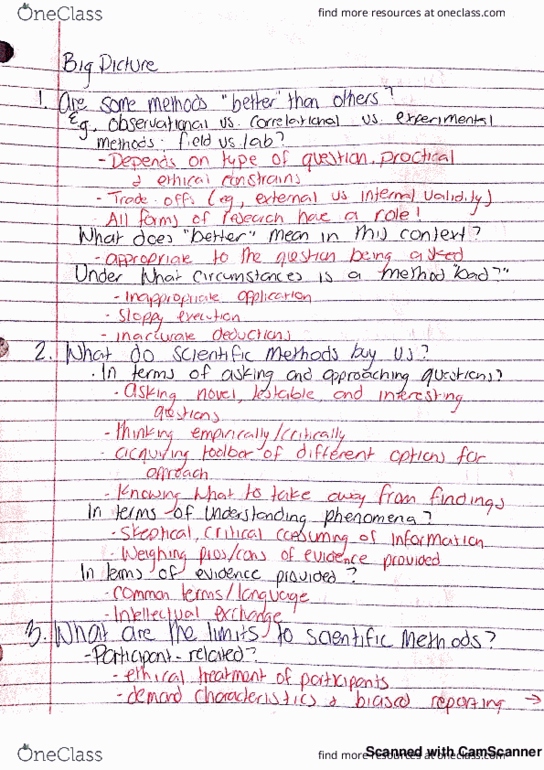 OneClass
find more resources at oneclass.com
Big Picture
1. Are some methods "better" than others?
Eg, observational vs. correlational vs. experimental
methods; field vs. lab?
- Depends on type of question, practical
& ethical constrains
- Trade offs (eg, external vs internal validity)
- All forms of research have a role!
What does "better" mean in this context?
- appropriate to the question being asked
Under what circumstances is a method "bad?"
- Inappropriate application
- Sloppy execution
- inaccurate deductions
2. What do scientific methods buy us?
· In terms of asking and approaching questions?
- asking novel, testable and interesting
questions
- thinking empirically/critically
- acquiring toolbar of different options for
approach
- Knowing what to take away from findings
In terms of understanding phenomena?
- Skeptical, critical consuming of information
- Weighing pros/cons of evidence provided
In terms of evidence provided?
- common terms/language
- Intellectual exchange
3. What are the limits to scientific methods?
- Participant-related?
- ethical treatment of participants
- demand characteristics & biased reporting →
OneClass
find more resources at oneclass.com
Scanned with CamScanner